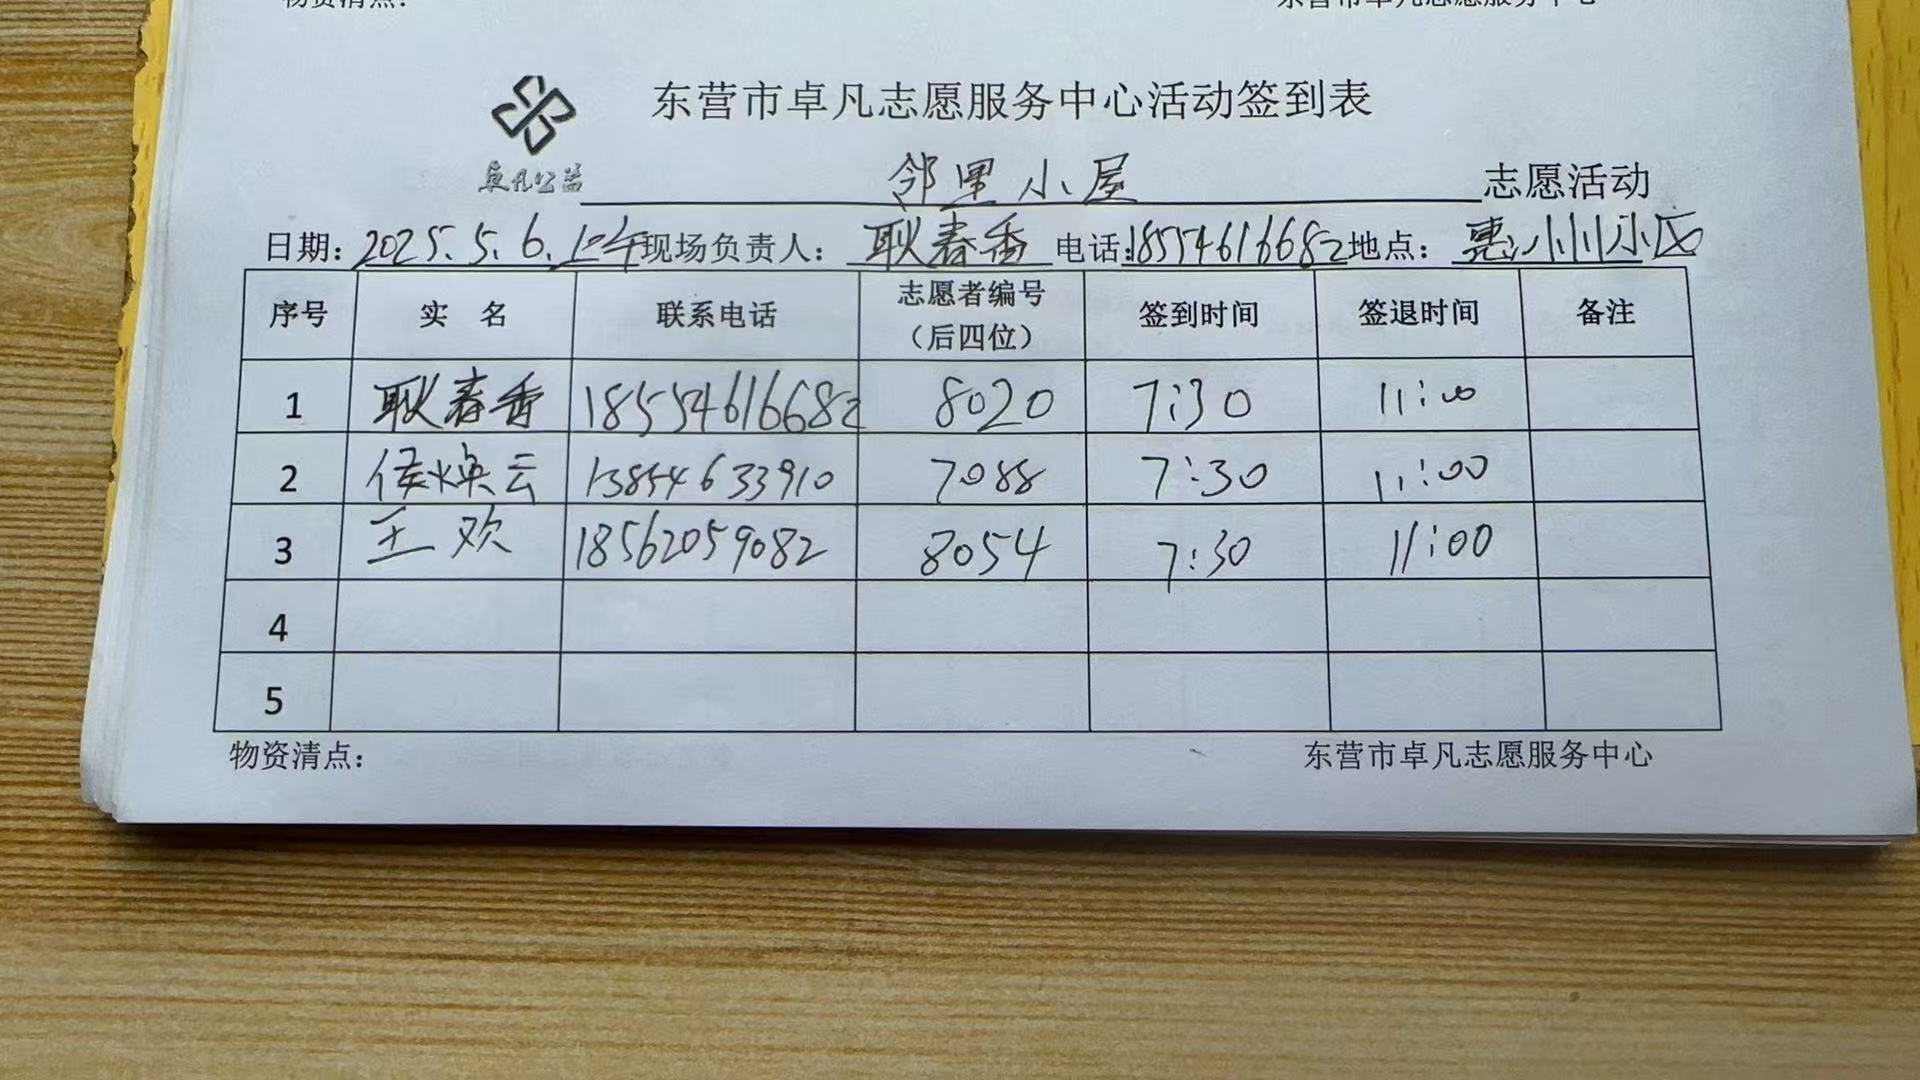 物资清点：
东营市卓凡志愿服务中心
东营市卓凡志愿服务中心活动签到表
卓凡公益
邻里小屋 志愿活动
日期：2025.5.6.上午 现场负责人：耿春香 电话：18554616682 地点：惠州小区
序号 实 名 联系电话 志愿者编号（后四位） 签到时间 签退时间 备注
1 耿春香 18554616682 8020 7:30 11:00
2 侯焕云 13854633910 7088 7:30 11:00
3 王欢 18562059082 8054 7:30 11:00
4
5
物资清点： 东营市卓凡志愿服务中心